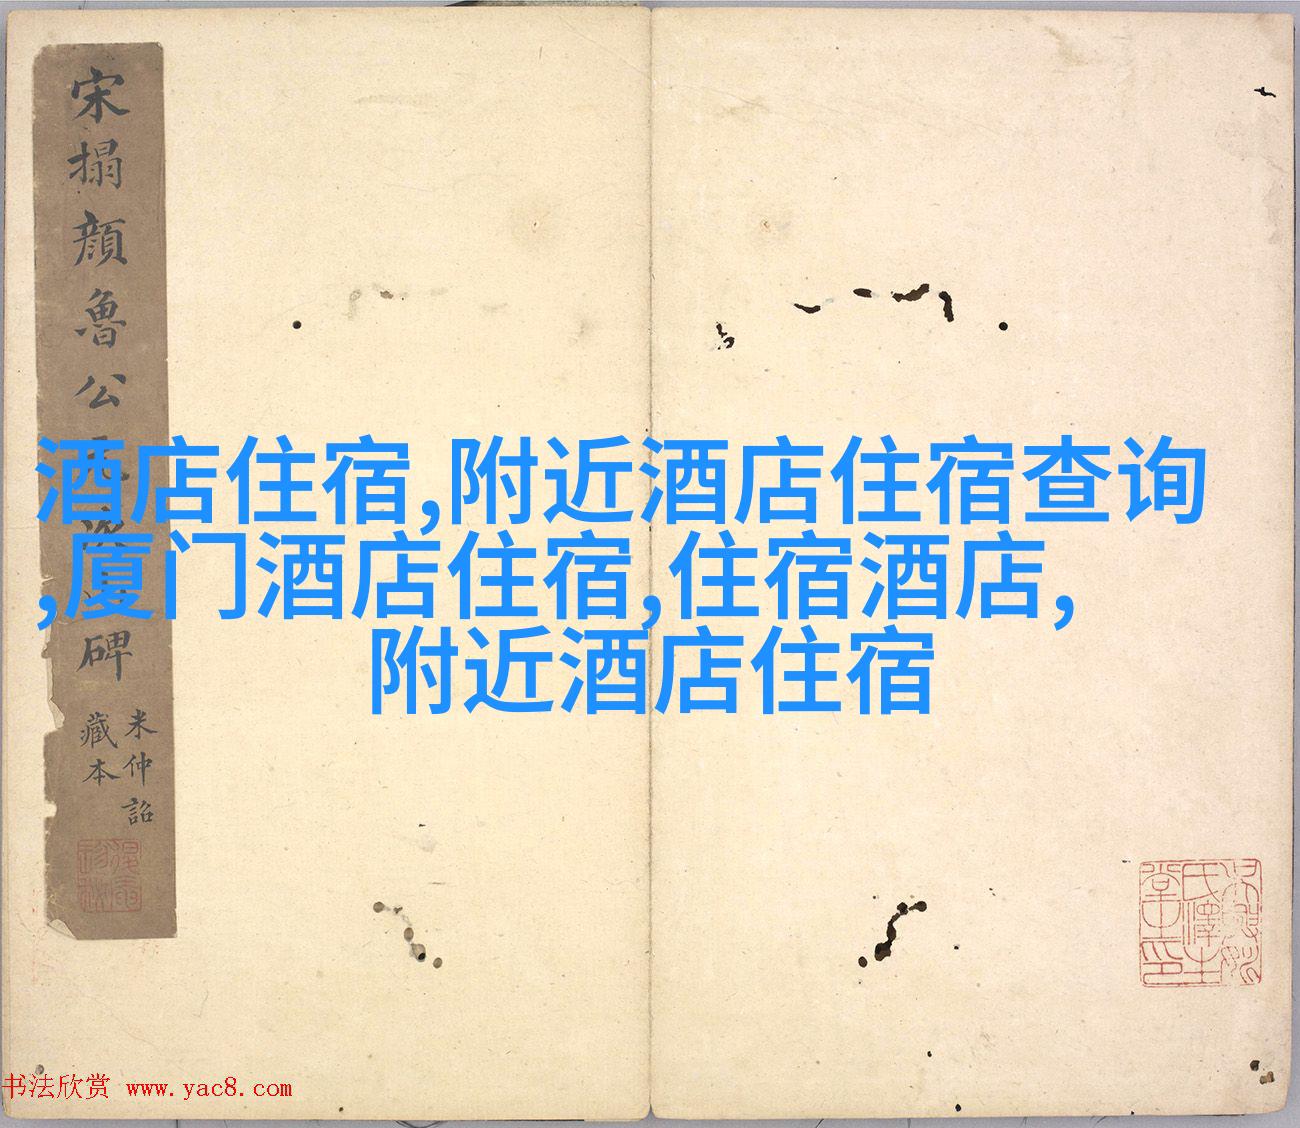 宋搨顔魯公
碑
米仲詔
藏本
酒店住宿,附近酒店住宿查询
,厦门酒店住宿,住宿酒店,
附近酒店住宿
书法欣赏 www.yac8.com